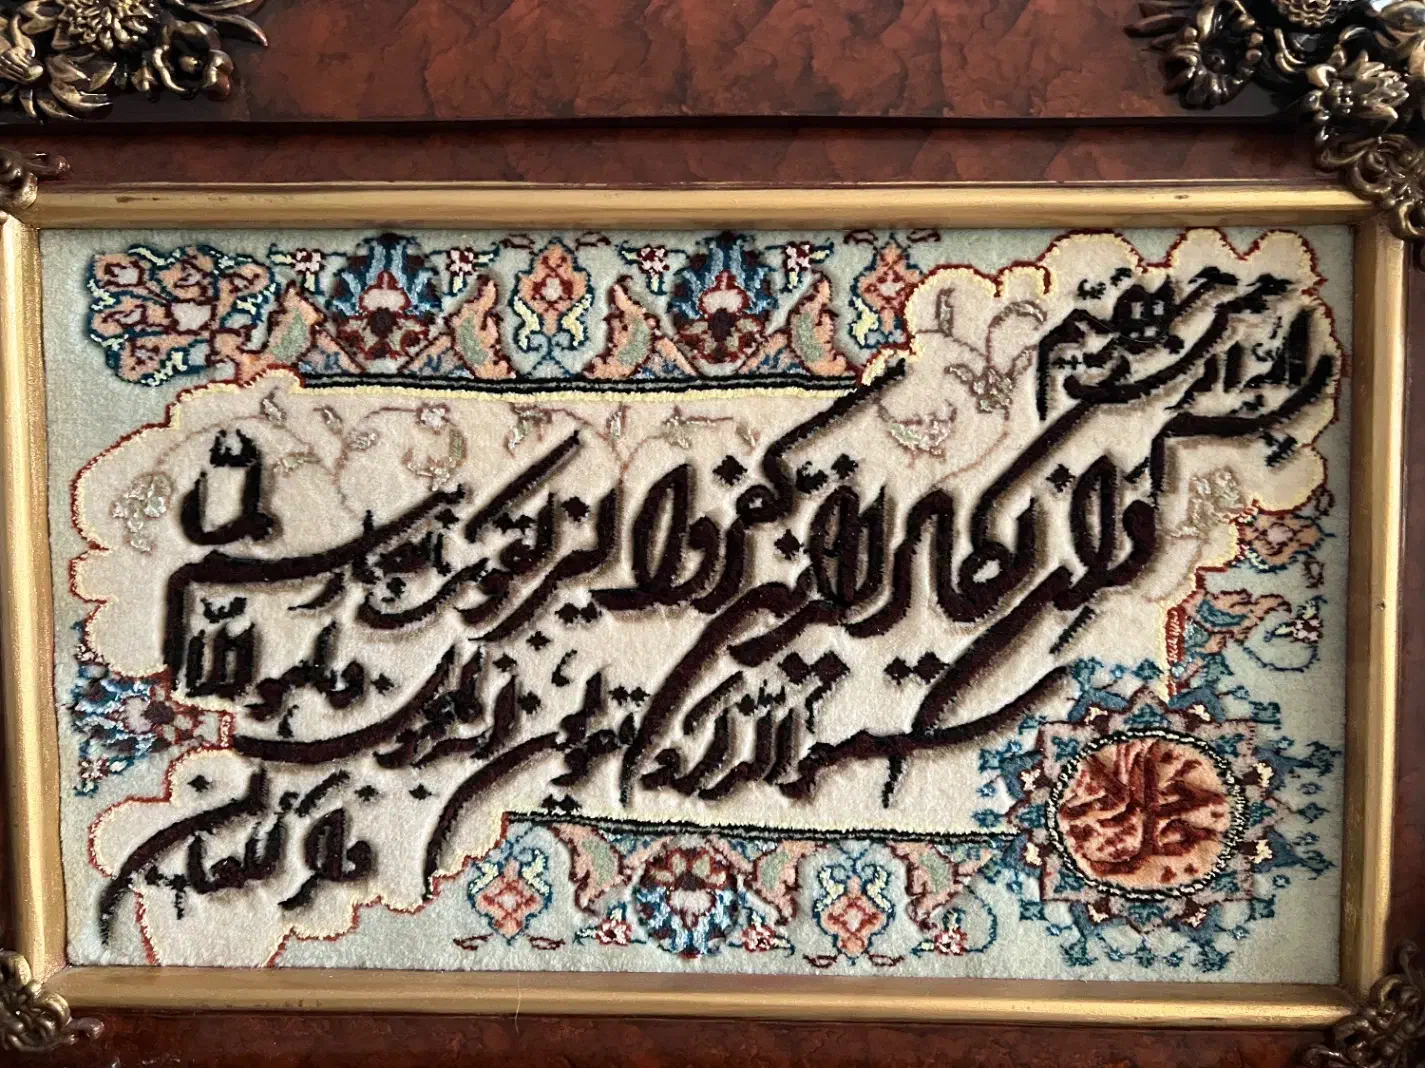 بسم الله الرحمن الرحيم
وان يكاد الذين كفروا ليزلقونك بابصارهم لما
سمعوا الذكر و يقولون انه لمجنون وما هو الا
ذكر للعالمين